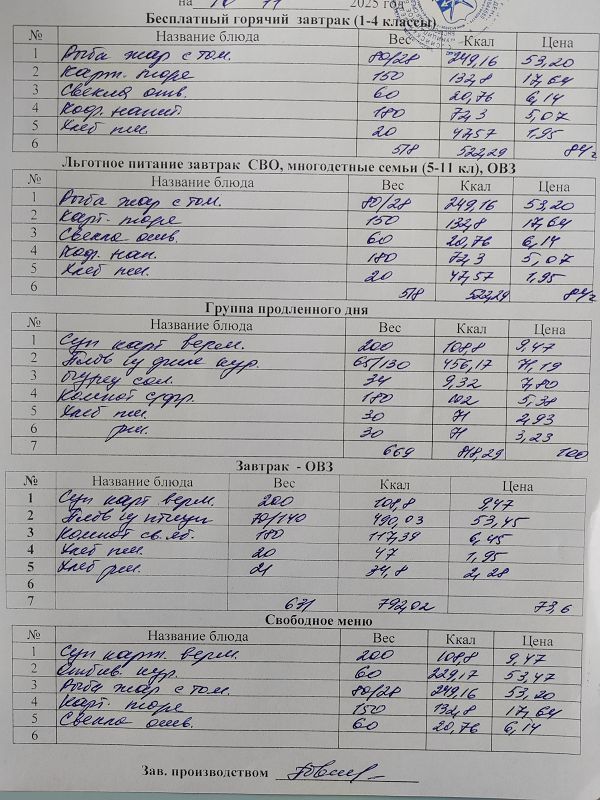 на 10 11 2025 год
Бесплатный горячий завтрак (1-4 классы)
№ Название блюда Вес Ккал Цена
1 Рыба жар с том. 80/28 249,16 53,20
2 Карт. пюре 150 132,8 17,64
3 Свекла отв. 60 20,76 6,14
4 Коф. напит. 180 72,3 5,07
5 Хлеб пш. 20 47,57 1,95
6 518 522,29 84
Льготное питание завтрак СВО, многодетные семьи (5-11 кл), ОВЗ
№ Название блюда Вес Ккал Цена
1 Рыба жар с том. 80/28 249,16 53,20
2 Карт. пюре 150 132,8 17,64
3 Свекла отв. 60 20,76 6,14
4 Коф. нап. 180 72,3 5,07
5 Хлеб пш. 20 47,57 1,95
6 518 522,29 84
Группа продленного дня
№ Название блюда Вес Ккал Цена
1 Суп карт верм. 200 108,8 9,47
2 Плов из филе кур. 65/130 456,17 71,19
3 Огурец сол. 34 9,32 7,80
4 Компот с/фр. 180 102 5,38
5 Хлеб пш. 30 71 2,93
6 рж. 30 71 3,23
7 669 818,29 100
Завтрак - ОВЗ
№ Название блюда Вес Ккал Цена
1 Суп карт верм. 200 108,8 9,47
2 Плов из птицы 70/140 490,03 53,45
3 Компот св. яб. 180 117,39 6,45
4 Хлеб пш. 20 47 1,95
5 Хлеб рж. 21 34,8 2,28
6
7 631 792,02 73,6
Свободное меню
№ Название блюда Вес Ккал Цена
1 Суп карт. верм. 200 108,8 9,47
2 Отбив. кур. 60 229,17 53,47
3 Рыба жар с том. 80/28 249,16 53,20
4 Карт. пюре 150 132,8 17,64
5 Свекла отв. 60 20,76 6,14
6
Зав. производством